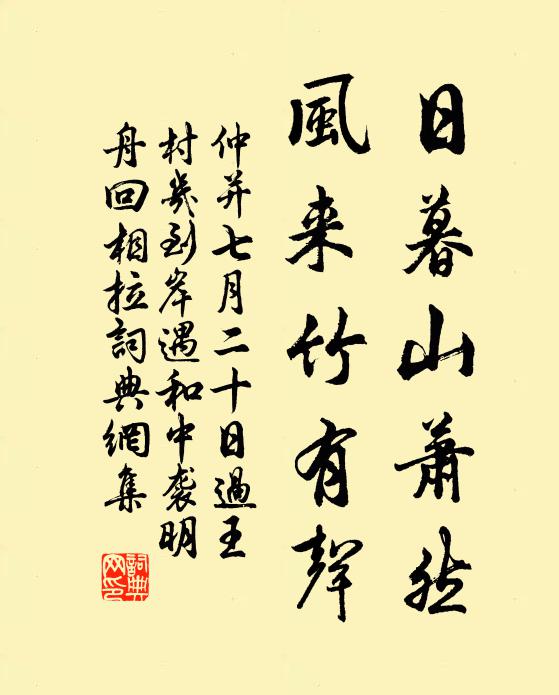 日暮山蕭然
風来竹有聲
仲并七月二十日過王
村幾到岸遇和中襲明
舟回相拉詞典網集
詞典網印